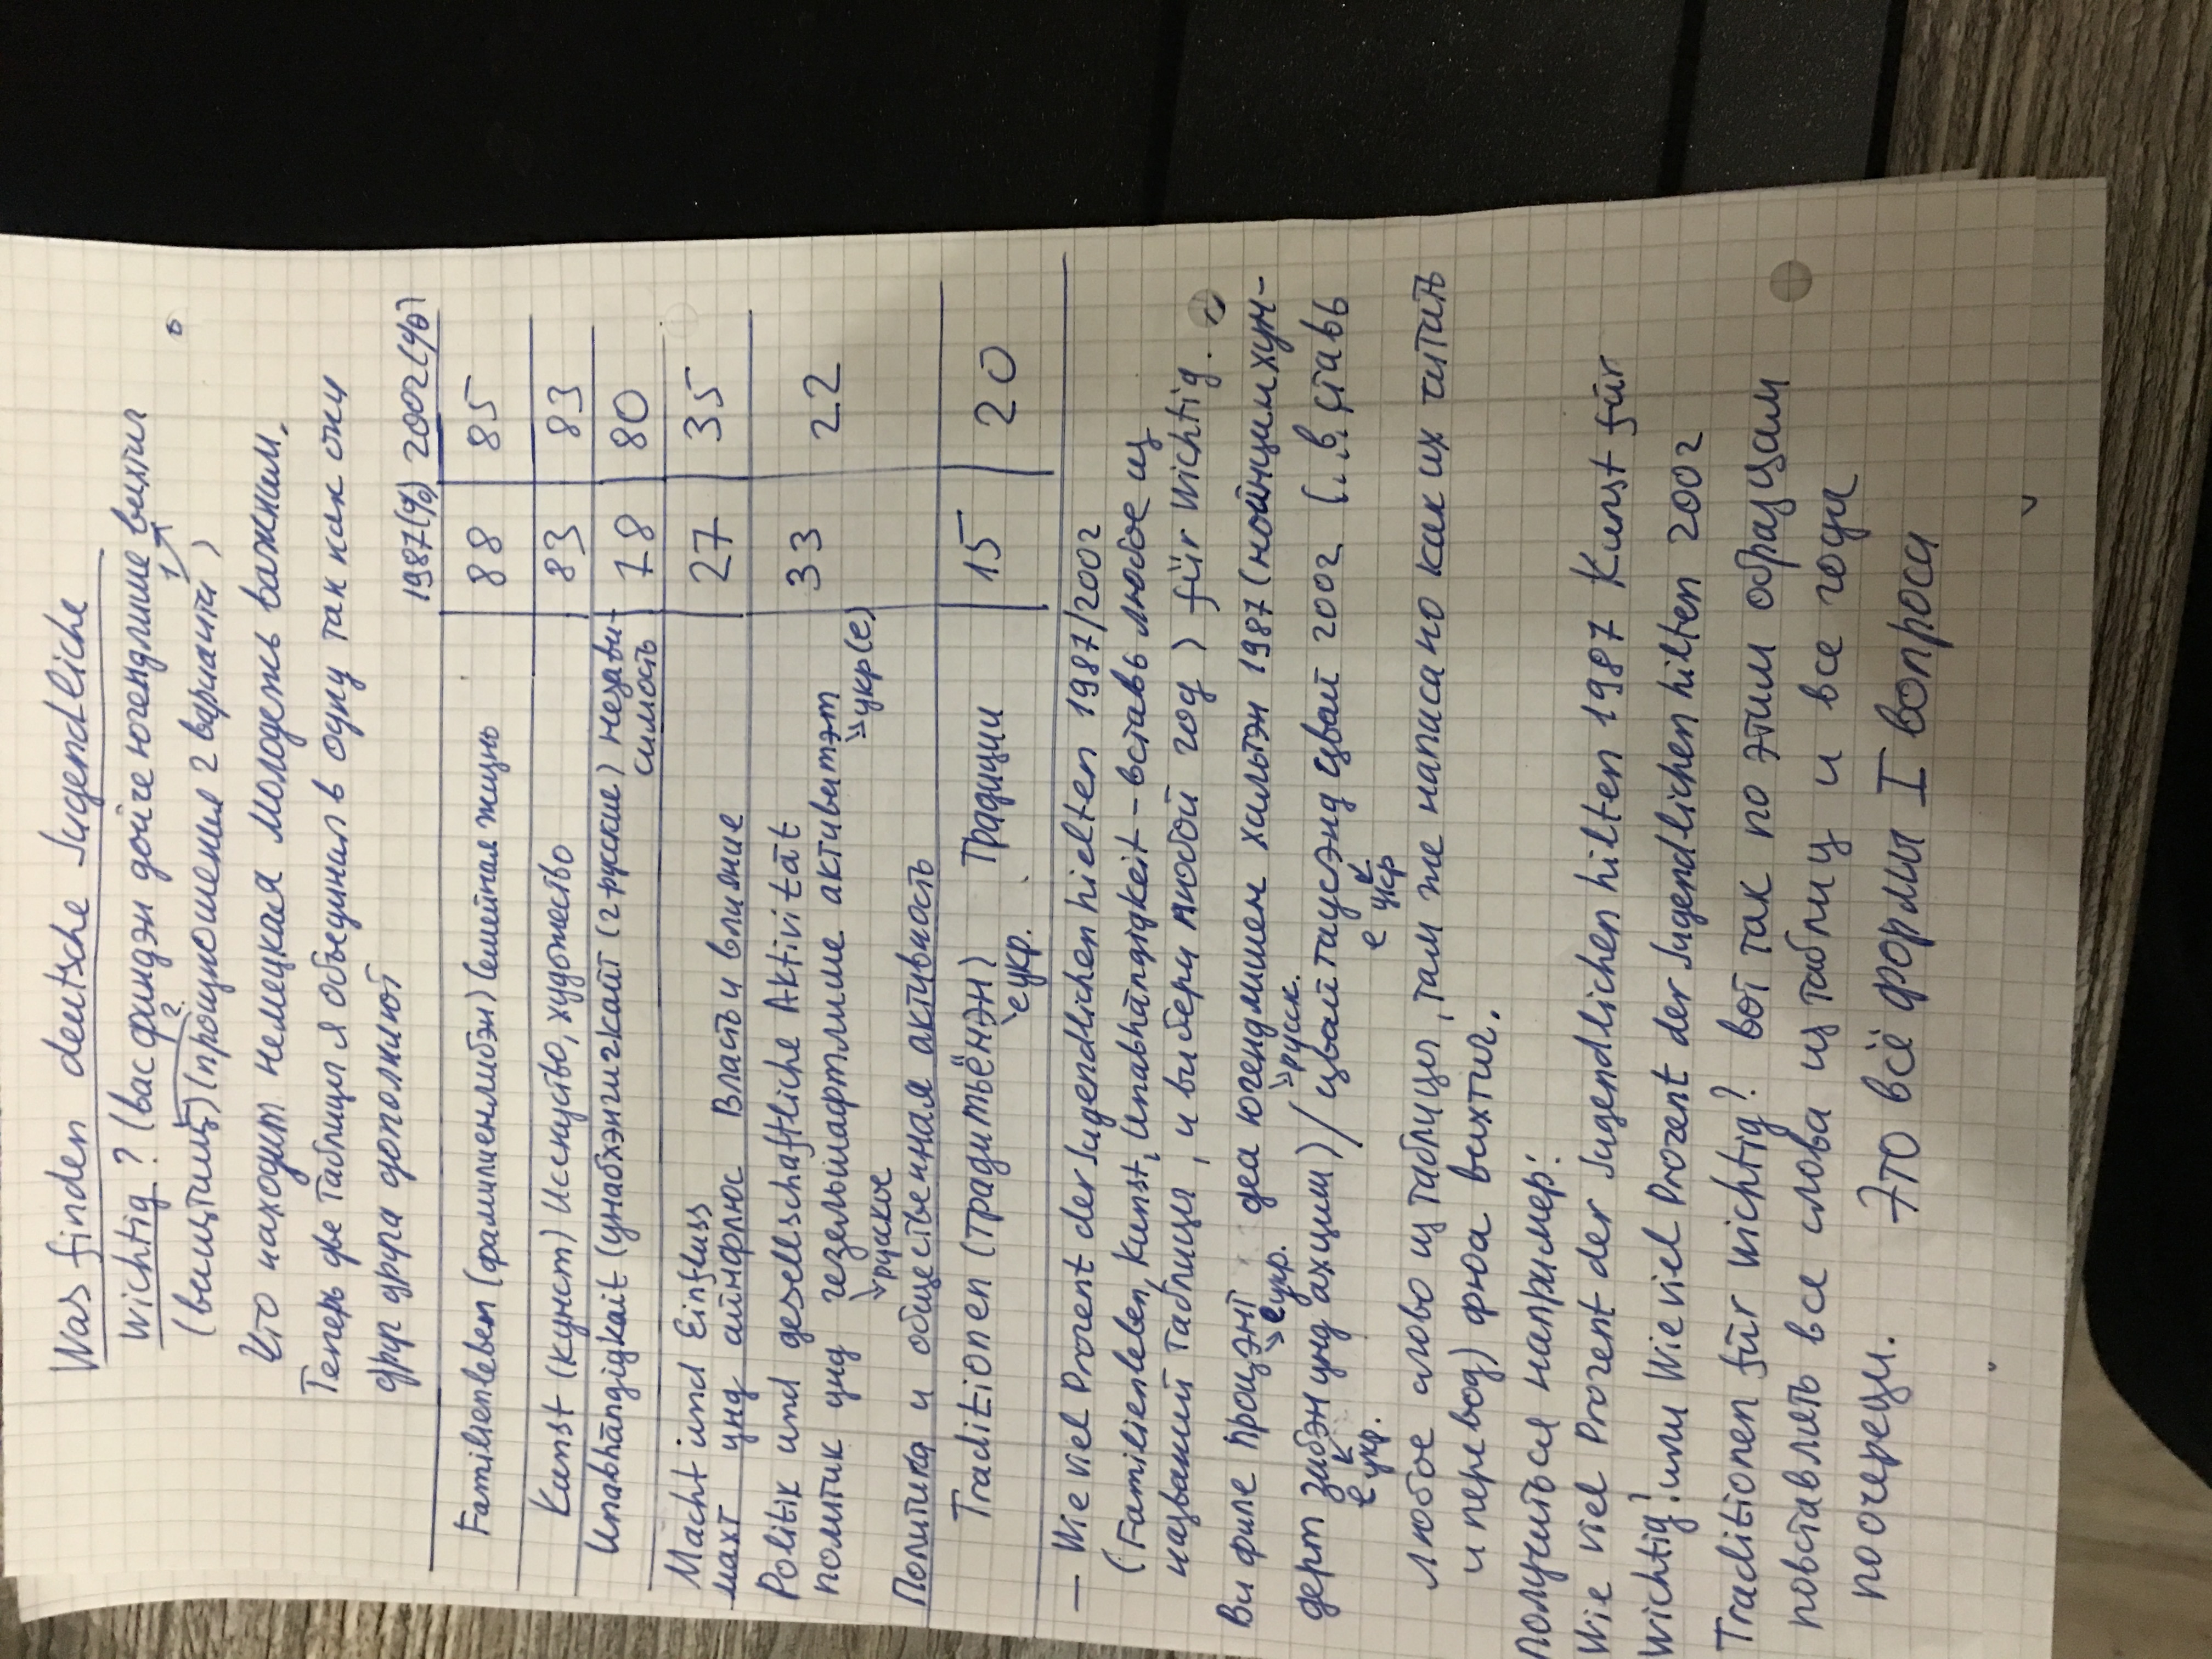 Was finden deutsche Jugendliche
wichtig? (вас финдэн дойче югендлише вихтиг
(вишtiш) (произношения 2 варианта)
Что находит немецкая молодежь важним.
Теперь две таблици я объединил в одну так как они
друг друга дополняют
1987(%) 2002(%)
Familienleben (фамилиенлибэн) Семейная жизнь 88 85
Kunst (кунст) Исскуство, художество 83 83
Unabhängigkait (унабхэнгигкайт (г-руские) незави- 78 80
симость
Macht und Einfluss 27 35
махт унд айнфлюс Власть и влияние
Politik und gesellschaftliche Aktivität 33 22
политик унд гезельшафтлише активитэт
руское укр(е)
Политика и общественная активность
Traditionen (традитьёнэн) Традиции 15 20
е укр.
— Wie viel Prozent der Jugendlichen hielten 1987/2002
(Familienleben, Kunst, Unabhängigkeit - вставь любое из
названий таблици, и вибери любой год) für wichtig.
Ви филе процэнт деа югендлишен хильтэн 1987 (нойнцимхун-
е укр. русск.
дерт зибэн унд ахциш) / цвай таусэнд цвай 2002 (.в. ставь
е укр. е укр
любое слово из таблици, там же написано как их читать
и перевод) фюа вихтиг.
получиться например:
Wie viel Prozent der Jugendlichen hilten 1987 Kunst für
wichtig? или Wie viel Prozent der Jugendlichen hilten 2002
Traditionen für wichtig? вот так по этим образцам
повставлять все слова из таблиц и все года
по очереди. Это всё формы I вопроса